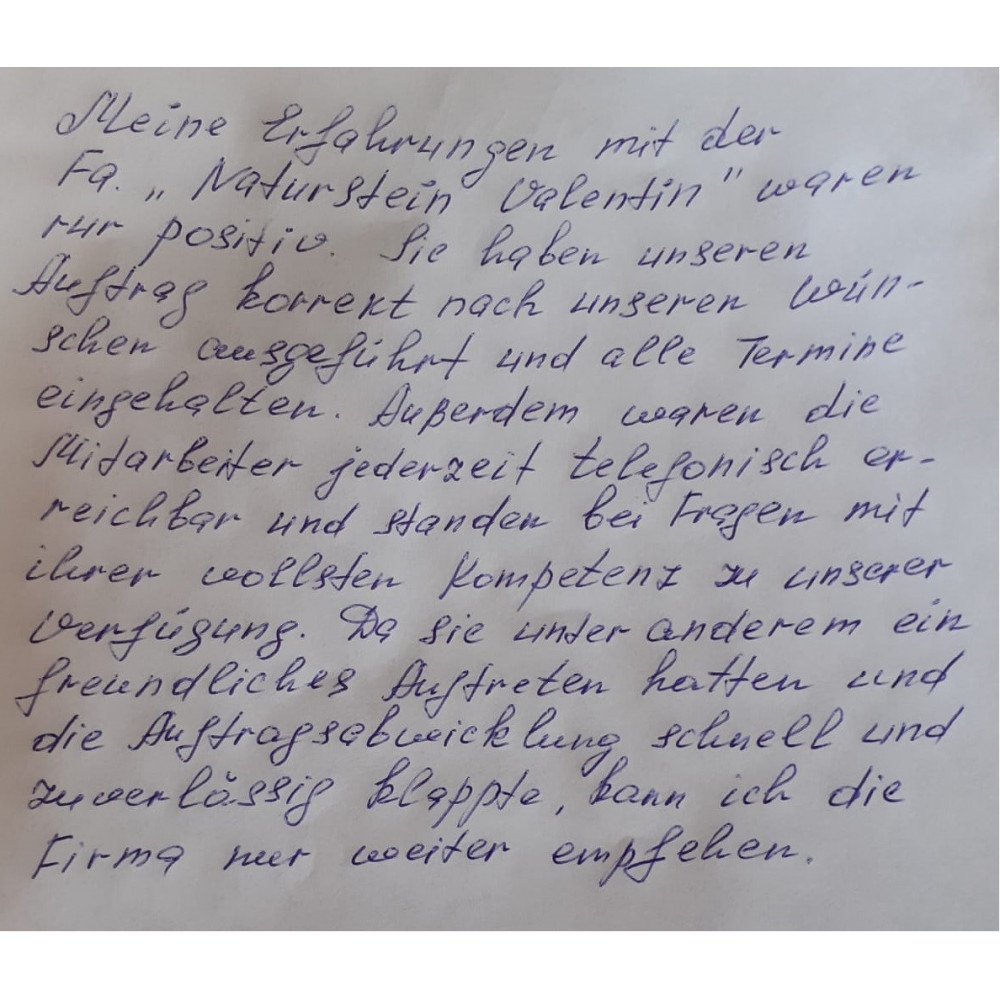 Meine Erfahrungen mit der
Fa. „Naturstein Valentin" waren
nur positiv. Sie haben unseren
Auftrag korrekt nach unseren Wün-
schen ausgeführt und alle Termine
eingehalten. Außerdem waren die
Mitarbeiter jederzeit telefonisch er-
reichbar und standen bei Fragen mit
ihrer vollsten Kompetenz zu unserer
Verfügung. Da sie unter anderem ein
freundliches Auftreten hatten und
die Auftragsabwicklung schnell und
zuverlässig klappte, kann ich die
Firma nur weiter empfehen.